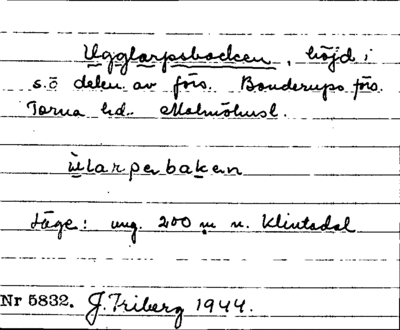 Ugglarpsbacken, höjd i
s.ö delen av förs. Bonderups förs.
Torna hd. Malmöhusl.
ùlarpəbakən
Läge: ung. 200 m n. Klintadal
Nr 5832. J. Friberg 1944.